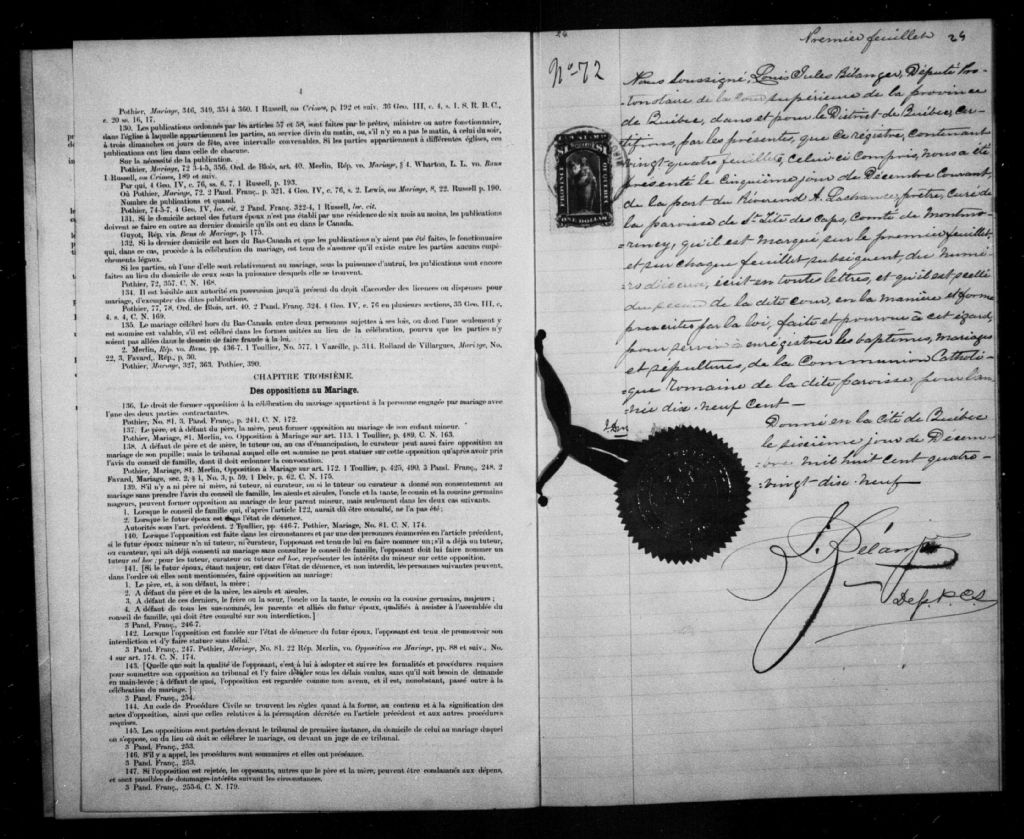 4
Pothier, Mariage, 346, 349, 354 à 360. 1 Russell, on Crimes, p. 192 et suiv. 36 Geo. III, c. 4, s. 1. S. R. B. C.,
c. 20 ss. 16, 17.
130. Les publications ordonnés par les articles 57 et 58, sont faites par le prêtre, ministre ou autre fonctionnaire,
dans l'église à laquelle appartiennent les parties, au service divin du matin, ou, s'il n'y en a pas le matin, à celui du soir,
à trois dimanches ou jours de fête, avec intervalle convenables. Si les parties appartiennent à différentes églises, ces
publications ont lieu dans celle de chacune.
Sur la nécessité de la publication.
Pothier, Mariage, 72 3-4-5, 356. Ord. de Blois, art. 40. Merlin, Rép. vo. Mariage, § 4. Wharton, L. L. vo. Bans
1 Russell, on Crimes, 189 et suiv.
Par qui, 4 Geo. IV, c. 76, ss. 6, 7. 1 Russell, p. 193.
Où Pothier, Mariage, 72. 2 Pand. Franç., p. 321, 4 Geo. IV, c. 76, s. 2. Lewis, on Mariage, 8, 22. Russell p. 190.
Nombre de publications et quand.
Pothier, 74-5-7, 4 Geo. IV, loc. cit. 2 Pand. Franç. 322-4, 1 Russell, loc. cit.
131. Si le domicile actuel des futurs époux n'est pas établi par une résidence de six mois au moins, les publications
doivent se faire en outre au dernier domicile qu'ils ont eu dans le Canada.
Guyot, Rép. vis. Bans de Mariage, p. 175.
132. Si le dernier domicile est hors du Bas-Canada et que les publications n'y aient pas été faites, le fonctionnaire
qui, dans ce cas, procède à la célébration du mariage, est tenu de s'assurer qu'il existe entre les parties aucuns empê-
chements légaux.
Si les parties, où l'une d'elle sont relativement au mariage, sous la puissance d'autrui, les publications sont encore
faites au lieu du domicile de ceux sous la puissance desquels elle se trouvent.
Pothier, 72, 357. C. N. 168.
134. Il est loisible aux autorité en possession jusqu'à présent du droit d'accorder des licences ou dispenses pour
mariage, d'exempter des dites publications.
Pothier, 77, 78, Ord. de Blois, art. 40. 2 Pand. Franç. 324. 4 Geo. IV, c. 76 en plusieurs sections, 35 Geo. III, c.
4, s. 4, C. N. 169.
135. Le mariage célébré hors du Bas-Canada entre deux personnes sujettes à ses lois, ou dont l'une seulement y
est soumise est valable, s'il est célébré dans les formes usitées au lieu de la célébration, pourvu que les parties n'y
soient pas allées dans le dessein de faire fraude à la loi.
2. Merlin, Rép. vo. Bans, pp. 436-7. 1 Toullier, No. 577. 1 Vazeille, p. 314. Rolland de Villargues, Mariage, No.
22, 3, Favard, Rép., p. 50.
Pothier, Mariage, 327, 363. Pothier, 390.
CHAPITRE TROISIÈME.
Des oppositions au Mariage.
136. Le droit de former opposition à la célébration du mariage appartient à la personne engagée par mariage avec
l'une des deux parties contractantes.
Pothier, No. 81. 3, Pand. Franç., p. 241. C. N. 172.
137. Le père, et à défaut du père, la mère, peut former opposition au mariage de son enfant mineur.
Pothier, Mariage, 81. Merlin, vo. Opposition à Mariage sur art. 113. 1 Toullier, p. 489. C. N. 163.
138. A défaut de père et de mère, le tuteur ou, au cas d'émancipation, le curateur, peut aussi faire opposition au
mariage de son pupille; mais le tribunal auquel elle est soumise ne peut statuer sur cette opposition qu'après avoir pris
l'avis du conseil de famille, dont il doit ordonner la convocation.
Pothier, Mariage, 81. Merlin, Opposition à Mariage sur art. 172. 1 Toullier, p. 425, 490. 3 Pand. Franç., 248. 2
Favard, Mariage, sec. 2, § 1, No. 3, p. 59. 1 Delv. p. 62. C. N. 175.
139. S'il n'y a ni père ni mère, ni tuteur, ni curateur, ou si le tuteur ou curateur a donné son consentement au
mariage sans prendre l'avis du conseil de famille, les aïeuls et aïeules, l'oncle et la tante, le cousin et la cousine germains
majeurs, peuvent former opposition au mariage de leur parent mineur, mais seulement dans les deux cas suivants.
1. Lorsque le conseil de famille qui, d'après l'article 122, aurait dû être consulté, ne l'a pas été;
2. Lorsque le futur époux est dans l'état de démence.
Autorités sous l'art. précédent. 2 Toullier, pp. 446-7. Pothier, Mariage, No. 81. C. N. 174.
140. Lorsque l'opposition est faite dans les circonstances et par une des personnes énumérées en l'article précédent,
si le futur époux mineur n'a ni tuteur, ni curateur, l'opposant est tenu de lui en faire nommer un; s'il a déjà un tuteur,
ou curateur, qui ait déjà consenti au mariage sans consulter le conseil de famille, l'opposant doit lui faire nommer un
tuteur ad hoc; pour les tuteur, curateur ou tuteur ad hoc, représenter les intérêts du mineur sur cette opposition.
141. [Si le futur époux, étant majeur, est dans l'état de démence, et non interdit, les personnes suivantes peuvent,
dans l'ordre où elles sont mentionnées, faire opposition au mariage:
1. Le père, et, à son défaut, la mère;
2. A défaut du père et de la mère, les aïeuls et aïeules.
3. A défaut de ces derniers, le frère ou la sœur, l'oncle ou la tante, le cousin ou la cousine germains, majeurs;
4. A défaut de tous les sus-nommés, les parents et alliés du futur époux, qualifiés à assister à l'assemblée du
conseil de famille, qui doit être consulté sur son interdiction.]
3 Pand. Franç., 246-7.
142. Lorsque l'opposition est fondée sur l'état de démence du futur époux, l'opposant est tenu de promouvoir son
interdiction et d'y faire statuer sans délai.
3 Pand. Franç., 247. Pothier, Mariage, No. 81. 22 Rép. Merlin, vo. Opposition au Mariage, pp. 88 et suiv., No.
4 sur art. 174. C. N. 174.
143. [Quelque soit la qualité de l'opposant, c'est à lui à adopter et suivre les formalités et procédures requises
pour soumettre son opposition au tribunal et l'y faire décider sous les délais voulus, sans qu'il soit besoin de demande
en main-levée; à défaut de quoi, l'opposition est regardée comme non avenu, et il est, nonobstant, passé outre à la
célébration du mariage.]
3 Pand. Franç., 254.
144. Au code de Procédure Civile se trouvent les règles quant à la forme, au contenu et à la signification des
actes d'opposition, ainsi que celles relatives à la péremption décrétée en l'article précédent et aux autres procédures
requises.
145. Les oppositions sont portées devant le tribunal de première instance, du domicile de celui au mariage duquel
on s'oppose, ou du lieu où doit se célébrer le mariage, ou devant un juge de ce tribunal.
3 Pand. Franç., 253.
146. S'il y a appel, les procédures sont sommaires et elles ont préséance.
3 Pand. Franç., 253.
147. Si l'opposition est rejetée, les opposants, autres que le père et la mère, peuvent être condamnés aux dépens,
et sont passibles de dommages-intérêts suivant les circonstances.
3 Pand. Franç., 255-6. C. N. 179.
Premier feuillet 24
No. 72
Nous Soussigné, Louis Jules Bélanger, Député Pro-
tonotaire de la Cour supérieure de la province
de Québec, dans et pour le District de Québec, cer-
tifions, par les présentes, que ce registre, contenant
vingt quatre feuillets, celui ci compris, nous a été
présenté le cinquième jour de Décembre courant,
de la part du Révérend A. Lachance prêtre, curé de
la paroisse de St Tite des Caps, Comté de Montmo-
rency, qu'il est marqué sur le premier feuillet,
et sur chaque feuillet subséquent, du numé-
ro d'icelui, écrit en toutes lettres, et qu'il est scellé
du sceau de la dite cour, en la manière et forme
prescrites par la loi, faite et pourvue à cet égard,
pour servir à enregistrer les baptêmes, mariages
et sépultures, de la Communion Catholi-
que Romaine de la dite paroisse pour l'an-
née dix-neuf cent
Donné en la Cité de Québec
le sixième jour de Décem-
bre mil huit cent quatre-
vingt-dix-neuf
L. J. Bélanger
Dep. P. C. S.
LAW STAMP
$1
PROVINCE
QUEBEC
ONE DOLLAR